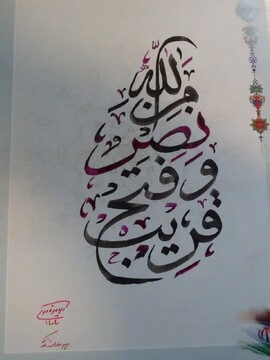 نصر من الله
وفتح
قریب